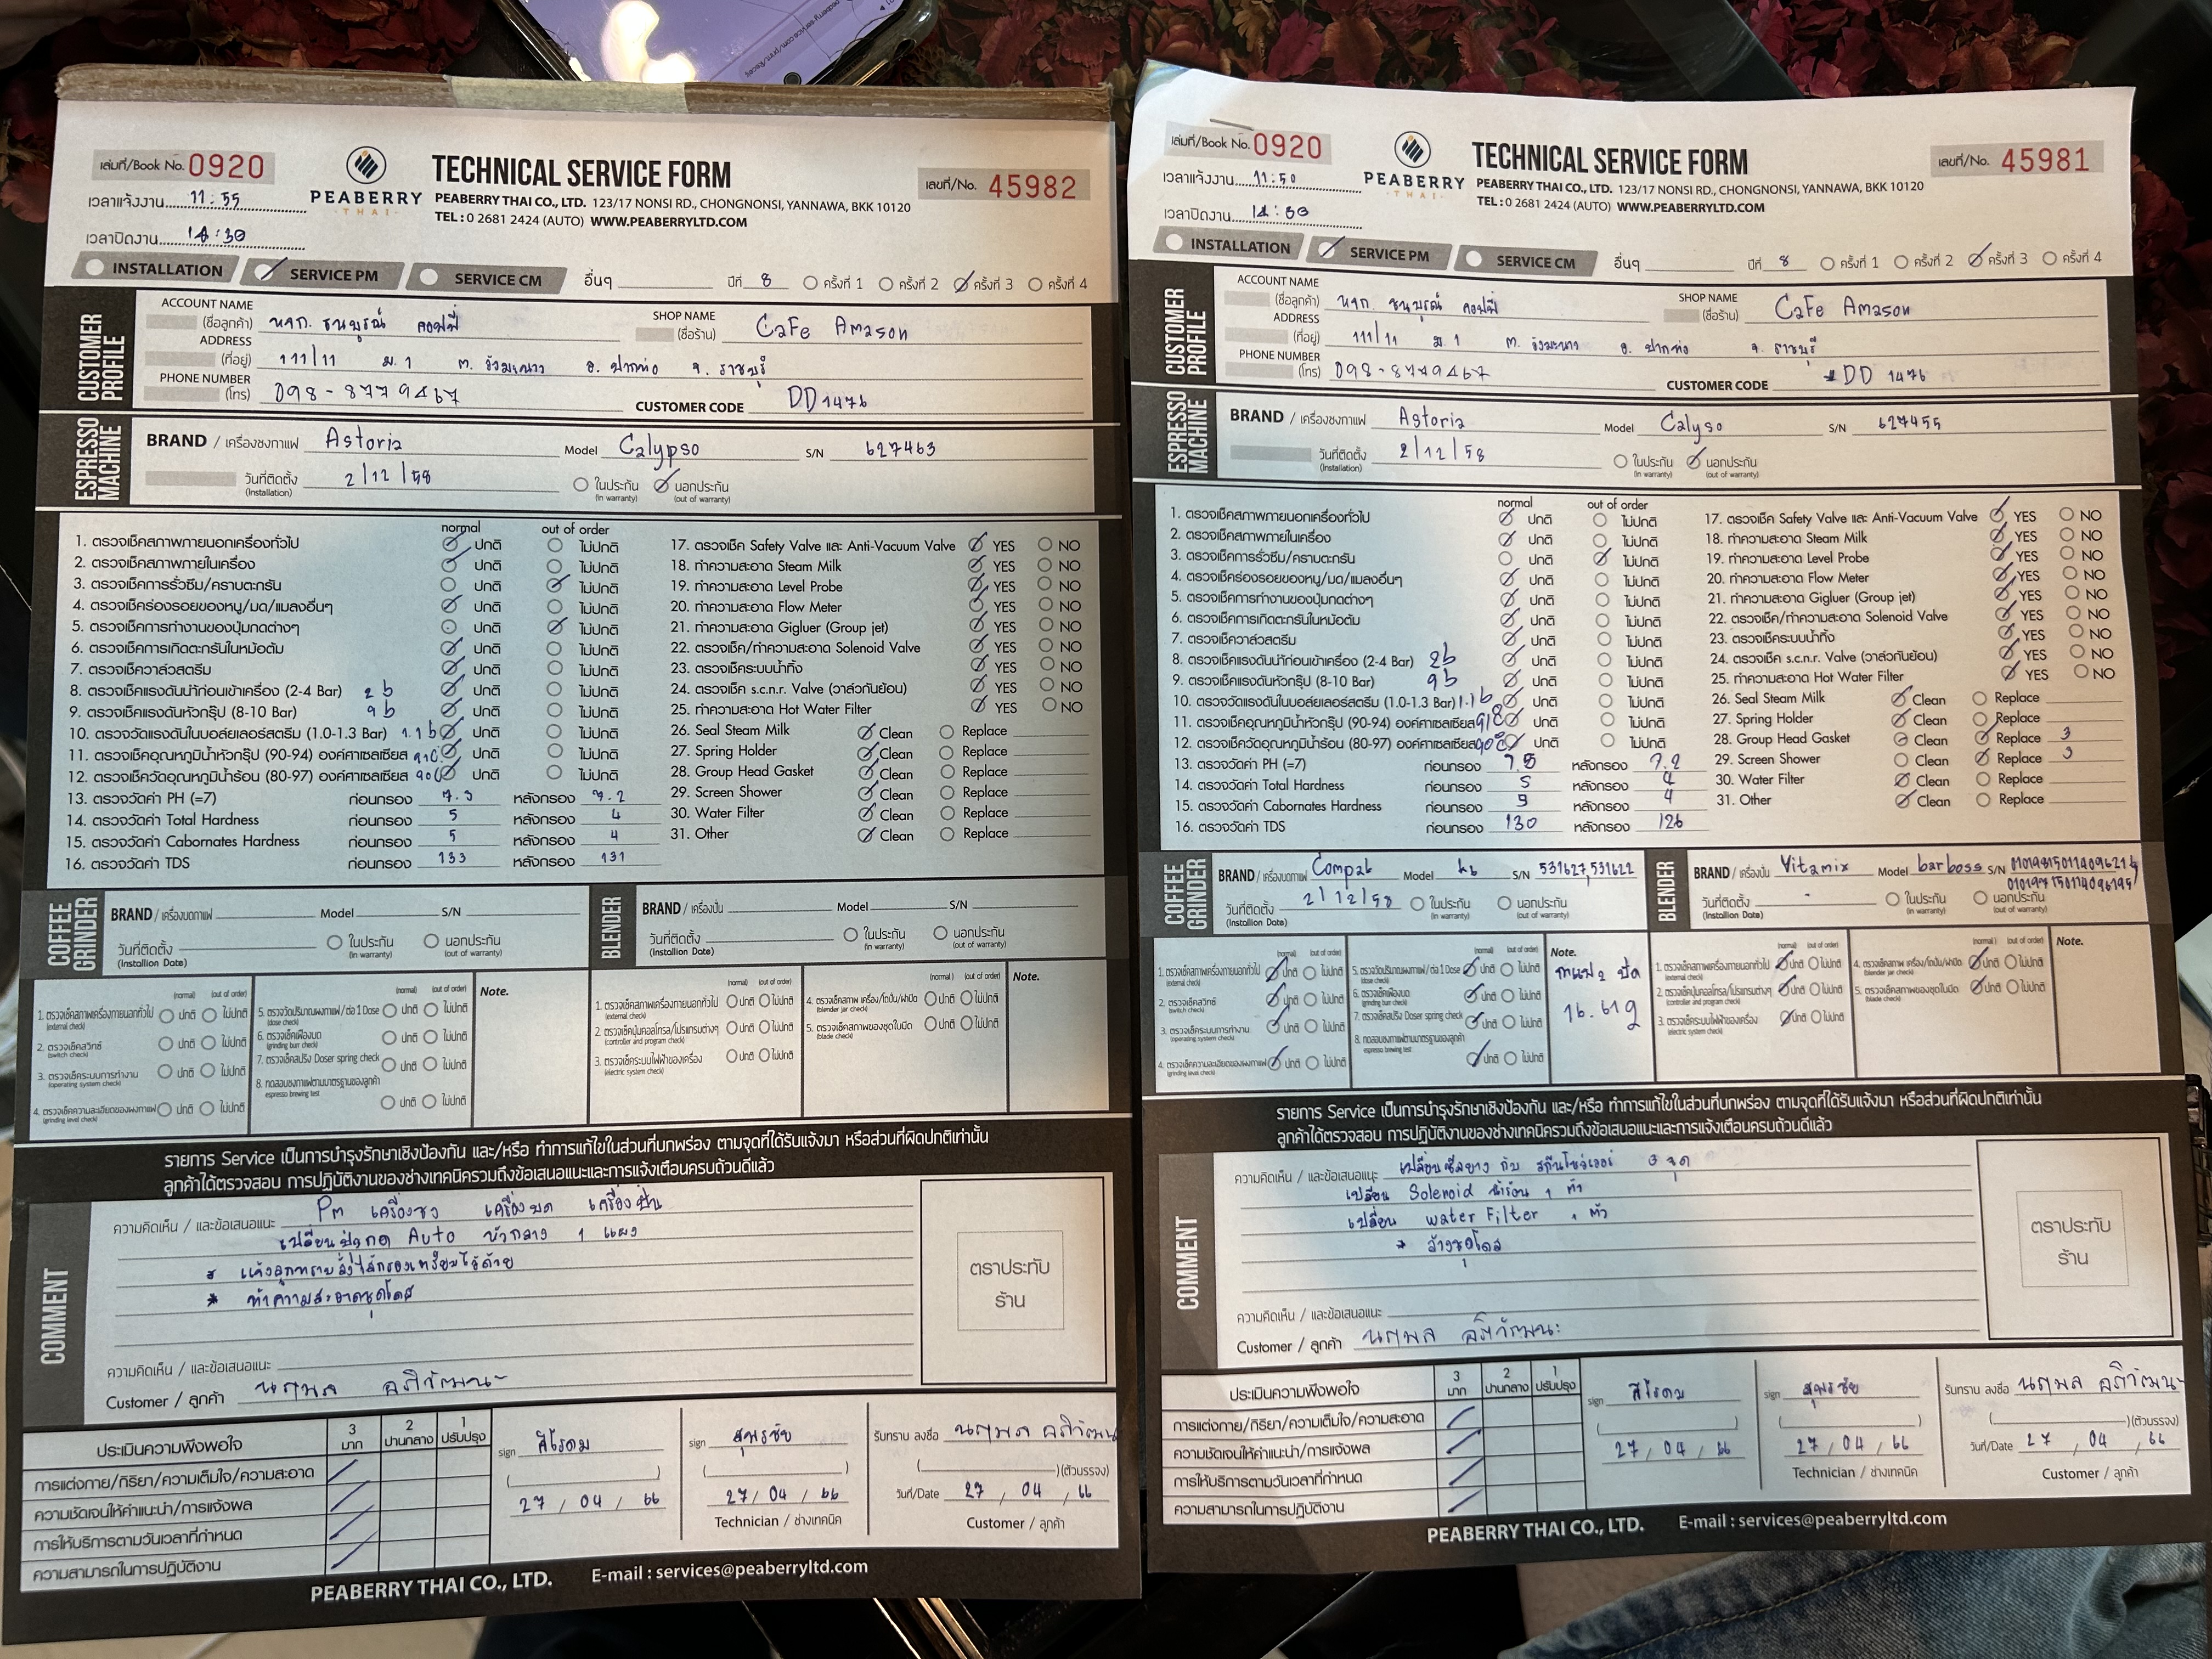 เล่มที่/Book No. 0920
PEABERRY
THAI
TECHNICAL SERVICE FORM
PEABERRY THAI CO., LTD. 123/17 NONSI RD., CHONGNONSI, YANNAWA, BKK 10120
TEL : 0 2681 2424 (AUTO) WWW.PEABERRYLTD.COM
เลขที่/No. 45982
เวลาแจ้งงาน 11:55
เวลาปิดงาน 14:30
INSTALLATION SERVICE PM SERVICE CM อื่นๆ ปีที่ 8 ครั้งที่ 1 ครั้งที่ 2 ครั้งที่ 3 ครั้งที่ 4
CUSTOMER PROFILE
ACCOUNT NAME (ชื่อลูกค้า) หจก. ธนบูรณ์ คอฟฟี่ SHOP NAME (ชื่อร้าน) CaFe Amason
ADDRESS (ที่อยู่) 111/11 ม.1 ต. วังมะนาว อ. ปากท่อ จ. ราชบุรี
PHONE NUMBER (โทร) 098-8779467 CUSTOMER CODE DD1476
ESPRESSO MACHINE
BRAND / เครื่องชงกาแฟ Astoria Model Calypso S/N 627463
วันที่ติดตั้ง (Installation) 2/12/58 ในประกัน (in warranty) นอกประกัน (out of warranty)
normal out of order
1. ตรวจเช็คสภาพภายนอกเครื่องทั่วไป ปกติ ไม่ปกติ
2. ตรวจเช็คสภาพภายในเครื่อง ปกติ ไม่ปกติ
3. ตรวจเช็คการรั่วซึม/คราบตะกรัน ปกติ ไม่ปกติ
4. ตรวจเช็คร่องรอยของหนู/มด/แมลงอื่นๆ ปกติ ไม่ปกติ
5. ตรวจเช็คการทำงานของปุ่มกดต่างๆ ปกติ ไม่ปกติ
6. ตรวจเช็คการเกิดตะกรันในหม้อต้ม ปกติ ไม่ปกติ
7. ตรวจเช็ควาล์วสตรีม ปกติ ไม่ปกติ
8. ตรวจเช็คแรงดันน้ำก่อนเข้าเครื่อง (2-4 Bar) 2b ปกติ ไม่ปกติ
9. ตรวจเช็คแรงดันหัวกรุ๊ป (8-10 Bar) 9b ปกติ ไม่ปกติ
10. ตรวจวัดแรงดันในบอล์ยเลอร์สตรีม (1.0-1.3 Bar) 1.1b ปกติ ไม่ปกติ
11. ตรวจเช็คอุณหภูมิน้ำหัวกรุ๊ป (90-94) องศ์าศาเซลเซียส 91C ปกติ ไม่ปกติ
12. ตรวจเช็ควัดอุณหภูมิน้ำร้อน (80-97) องศ์าศาเซลเซียส 90C ปกติ ไม่ปกติ
13. ตรวจวัดค่า PH (=7) ก่อนกรอง 7.5 หลังกรอง 7.2
14. ตรวจวัดค่า Total Hardness ก่อนกรอง 5 หลังกรอง 4
15. ตรวจวัดค่า Cabornates Hardness ก่อนกรอง 5 หลังกรอง 4
16. ตรวจวัดค่า TDS ก่อนกรอง 133 หลังกรอง 131
17. ตรวจเช็ค Safety Valve และ Anti-Vacuum Valve YES NO
18. ทำความสะอาด Steam Milk YES NO
19. ทำความสะอาด Level Probe YES NO
20. ทำความสะอาด Flow Meter YES NO
21. ทำความสะอาด Gigluer (Group jet) YES NO
22. ตรวจเช็ค/ทำความสะอาด Solenoid Valve YES NO
23. ตรวจเช็คระบบน้ำทิ้ง YES NO
24. ตรวจเช็ค s.c.n.r. Valve (วาล์วกันย้อน) YES NO
25. ทำความสะอาด Hot Water Filter YES NO
26. Seal Steam Milk Clean Replace
27. Spring Holder Clean Replace
28. Group Head Gasket Clean Replace
29. Screen Shower Clean Replace
30. Water Filter Clean Replace
31. Other Clean Replace
COFFEE GRINDER
BRAND / เครื่องบดกาแฟ Model S/N
วันที่ติดตั้ง (Installion Date) ในประกัน (in warranty) นอกประกัน (out of warranty)
BLENDER
BRAND / เครื่องปั่น Model S/N
วันที่ติดตั้ง (Installion Date) ในประกัน (in warranty) นอกประกัน (out of warranty)
(normal) (out of order)
1. ตรวจเช็คสภาพเครื่องภายนอกทั่วไป (external check) ปกติ ไม่ปกติ
2. ตรวจเช็คสวิทซ์ (switch check) ปกติ ไม่ปกติ
3. ตรวจเช็คระบบการทำงาน (operating system check) ปกติ ไม่ปกติ
4. ตรวจเช็คความละเอียดของผงกาแฟ (grinding level check) ปกติ ไม่ปกติ
5. ตรวจวัดปริมาณผงกาแฟ/ต่อ 1 Dose (dose check) ปกติ ไม่ปกติ
6. ตรวจเช็คเฟืองบด (grinding burr check) ปกติ ไม่ปกติ
7. ตรวจเช็คสปริง Doser spring check ปกติ ไม่ปกติ
8. ทดสอบชงกาแฟตามมาตรฐานของลูกค้า espresso brewing test ปกติ ไม่ปกติ
Note.
1. ตรวจเช็คสภาพเครื่องภายนอกทั่วไป (external check) ปกติ ไม่ปกติ
2. ตรวจเช็คปุ่มคอลโทรล/โปรแกรมต่างๆ (controller and program check) ปกติ ไม่ปกติ
3. ตรวจเช็คระบบไฟฟ้าของเครื่อง (electric system check) ปกติ ไม่ปกติ
4. ตรวจเช็คสภาพ เครื่อง/โถปั่น/ฝาปิด (blender jar check) ปกติ ไม่ปกติ
5. ตรวจเช็คสภาพของชุดใบมีด (blade check) ปกติ ไม่ปกติ
Note.
รายการ Service เป็นการบำรุงรักษาเชิงป้องกัน และ/หรือ ทำการแก้ไขในส่วนที่บกพร่อง ตามจุดที่ได้รับแจ้งมา หรือส่วนที่ผิดปกติเท่านั้น
ลูกค้าได้ตรวจสอบ การปฏิบัติงานของช่างเทคนิครวมถึงข้อเสนอแนะและการแจ้งเตือนครบถ้วนดีแล้ว
COMMENT
ความคิดเห็น / และข้อเสนอแนะ Pm เครื่องชง เครื่องบด เครื่องปั่น
เปลี่ยนปุ่มกด Auto หัวกลาง 1 แผง
* แจ้งลูกทราบสั่งไส้กรองเตรียมไว้ด้วย
* ทำความสะอาดชุดโดส
ตราประทับ
ร้าน
ความคิดเห็น / และข้อเสนอแนะ
Customer / ลูกค้า นฤพล
ประเมินความพึงพอใจ 3 มาก 2 ปานกลาง 1 ปรับปรุง
การแต่งกาย/กิริยา/ความเต็มใจ/ความสะอาด
ความชัดเจนให้คำแนะนำ/การแจ้งผล
การให้บริการตามวันเวลาที่กำหนด
ความสามารถในการปฏิบัติงาน
sign
27 / 04 / 66
sign สุพรชัย
27 / 04 / 66
Technician / ช่างเทคนิค
รับทราบ ลงชื่อ นฤพล
(ตัวบรรจง)
วันที่/Date 27 / 04 / 66
Customer / ลูกค้า
PEABERRY THAI CO., LTD. E-mail : services@peaberryltd.com
เล่มที่/Book No. 0920
PEABERRY
THAI
TECHNICAL SERVICE FORM
PEABERRY THAI CO., LTD. 123/17 NONSI RD., CHONGNONSI, YANNAWA, BKK 10120
TEL : 0 2681 2424 (AUTO) WWW.PEABERRYLTD.COM
เลขที่/No. 45981
เวลาแจ้งงาน 11:50
เวลาปิดงาน
INSTALLATION SERVICE PM SERVICE CM อื่นๆ ปีที่ 8 ครั้งที่ 1 ครั้งที่ 2 ครั้งที่ 3 ครั้งที่ 4
CUSTOMER PROFILE
ACCOUNT NAME (ชื่อลูกค้า) หจก. ธนบูรณ์ คอฟฟี่ SHOP NAME (ชื่อร้าน) CaFe Amason
ADDRESS (ที่อยู่) 111/11 ม.1 ต. วังมะนาว อ. ปากท่อ จ. ราชบุรี
PHONE NUMBER (โทร) 098-8779467 CUSTOMER CODE DD 1476
ESPRESSO MACHINE
BRAND / เครื่องชงกาแฟ Astoria Model Calyso S/N 627455
วันที่ติดตั้ง (Installation) 2/12/58 ในประกัน (in warranty) นอกประกัน (out of warranty)
normal out of order
1. ตรวจเช็คสภาพภายนอกเครื่องทั่วไป ปกติ ไม่ปกติ
2. ตรวจเช็คสภาพภายในเครื่อง ปกติ ไม่ปกติ
3. ตรวจเช็คการรั่วซึม/คราบตะกรัน ปกติ ไม่ปกติ
4. ตรวจเช็คร่องรอยของหนู/มด/แมลงอื่นๆ ปกติ ไม่ปกติ
5. ตรวจเช็คการทำงานของปุ่มกดต่างๆ ปกติ ไม่ปกติ
6. ตรวจเช็คการเกิดตะกรันในหม้อต้ม ปกติ ไม่ปกติ
7. ตรวจเช็ควาล์วสตรีม ปกติ ไม่ปกติ
8. ตรวจเช็คแรงดันน้ำก่อนเข้าเครื่อง (2-4 Bar) 2b ปกติ ไม่ปกติ
9. ตรวจเช็คแรงดันหัวกรุ๊ป (8-10 Bar) 9b ปกติ ไม่ปกติ
10. ตรวจวัดแรงดันในบอล์ยเลอร์สตรีม (1.0-1.3 Bar) 1.1b ปกติ ไม่ปกติ
11. ตรวจเช็คอุณหภูมิน้ำหัวกรุ๊ป (90-94) องศ์าศาเซลเซียส 91C ปกติ ไม่ปกติ
12. ตรวจเช็ควัดอุณหภูมิน้ำร้อน (80-97) องศ์าศาเซลเซียส 90C ปกติ ไม่ปกติ
13. ตรวจวัดค่า PH (=7) ก่อนกรอง 7.5 หลังกรอง 7.2
14. ตรวจวัดค่า Total Hardness ก่อนกรอง 5 หลังกรอง 4
15. ตรวจวัดค่า Cabornates Hardness ก่อนกรอง 5 หลังกรอง 4
16. ตรวจวัดค่า TDS ก่อนกรอง 130 หลังกรอง 126
17. ตรวจเช็ค Safety Valve และ Anti-Vacuum Valve YES NO
18. ทำความสะอาด Steam Milk YES NO
19. ทำความสะอาด Level Probe YES NO
20. ทำความสะอาด Flow Meter YES NO
21. ทำความสะอาด Gigluer (Group jet) YES NO
22. ตรวจเช็ค/ทำความสะอาด Solenoid Valve YES NO
23. ตรวจเช็คระบบน้ำทิ้ง YES NO
24. ตรวจเช็ค s.c.n.r. Valve (วาล์วกันย้อน) YES NO
25. ทำความสะอาด Hot Water Filter YES NO
26. Seal Steam Milk Clean Replace
27. Spring Holder Clean Replace
28. Group Head Gasket Clean Replace 3
29. Screen Shower Clean Replace 3
30. Water Filter Clean Replace
31. Other Clean Replace
COFFEE GRINDER
BRAND / เครื่องบดกาแฟ Compak Model k6 S/N 531627,531622
วันที่ติดตั้ง (Installion Date) 2/12/58 ในประกัน (in warranty) นอกประกัน (out of warranty)
BLENDER
BRAND / เครื่องปั่น Vitamix Model barboss S/N
วันที่ติดตั้ง (Installion Date) - ในประกัน (in warranty) นอกประกัน (out of warranty)
(normal) (out of order)
1. ตรวจเช็คสภาพเครื่องภายนอกทั่วไป (external check) ปกติ ไม่ปกติ
2. ตรวจเช็คสวิทซ์ (switch check) ปกติ ไม่ปกติ
3. ตรวจเช็คระบบการทำงาน (operating system check) ปกติ ไม่ปกติ
4. ตรวจเช็คความละเอียดของผงกาแฟ (grinding level check) ปกติ ไม่ปกติ
5. ตรวจวัดปริมาณผงกาแฟ/ต่อ 1 Dose (dose check) ปกติ ไม่ปกติ
6. ตรวจเช็คเฟืองบด (grinding burr check) ปกติ ไม่ปกติ
7. ตรวจเช็คสปริง Doser spring check ปกติ ไม่ปกติ
8. ทดสอบชงกาแฟตามมาตรฐานของลูกค้า espresso brewing test ปกติ ไม่ปกติ
Note.
กาแฟ 2 ปัด
16.61g
1. ตรวจเช็คสภาพเครื่องภายนอกทั่วไป (external check) ปกติ ไม่ปกติ
2. ตรวจเช็คปุ่มคอลโทรล/โปรแกรมต่างๆ (controller and program check) ปกติ ไม่ปกติ
3. ตรวจเช็คระบบไฟฟ้าของเครื่อง (electric system check) ปกติ ไม่ปกติ
4. ตรวจเช็คสภาพ เครื่อง/โถปั่น/ฝาปิด (blender jar check) ปกติ ไม่ปกติ
5. ตรวจเช็คสภาพของชุดใบมีด (blade check) ปกติ ไม่ปกติ
Note.
รายการ Service เป็นการบำรุงรักษาเชิงป้องกัน และ/หรือ ทำการแก้ไขในส่วนที่บกพร่อง ตามจุดที่ได้รับแจ้งมา หรือส่วนที่ผิดปกติเท่านั้น
ลูกค้าได้ตรวจสอบ การปฏิบัติงานของช่างเทคนิครวมถึงข้อเสนอแนะและการแจ้งเตือนครบถ้วนดีแล้ว
COMMENT
ความคิดเห็น / และข้อเสนอแนะ เปลี่ยนซีลยาง กับ สกีนโชว์เวอร์ 3 จุด
เปลี่ยน Solenoid น้ำร้อน 1 ตัว
เปลี่ยน water Filter 1 ตัว
* ล้างชุดโดส
ตราประทับ
ร้าน
ความคิดเห็น / และข้อเสนอแนะ
Customer / ลูกค้า นฤพล
ประเมินความพึงพอใจ 3 มาก 2 ปานกลาง 1 ปรับปรุง
การแต่งกาย/กิริยา/ความเต็มใจ/ความสะอาด
ความชัดเจนให้คำแนะนำ/การแจ้งผล
การให้บริการตามวันเวลาที่กำหนด
ความสามารถในการปฏิบัติงาน
sign
27 / 04 / 66
sign สุพรชัย
27 / 04 / 66
Technician / ช่างเทคนิค
รับทราบ ลงชื่อ นฤพล
(ตัวบรรจง)
วันที่/Date 27 / 04 / 66
Customer / ลูกค้า
PEABERRY THAI CO., LTD. E-mail : services@peaberryltd.com